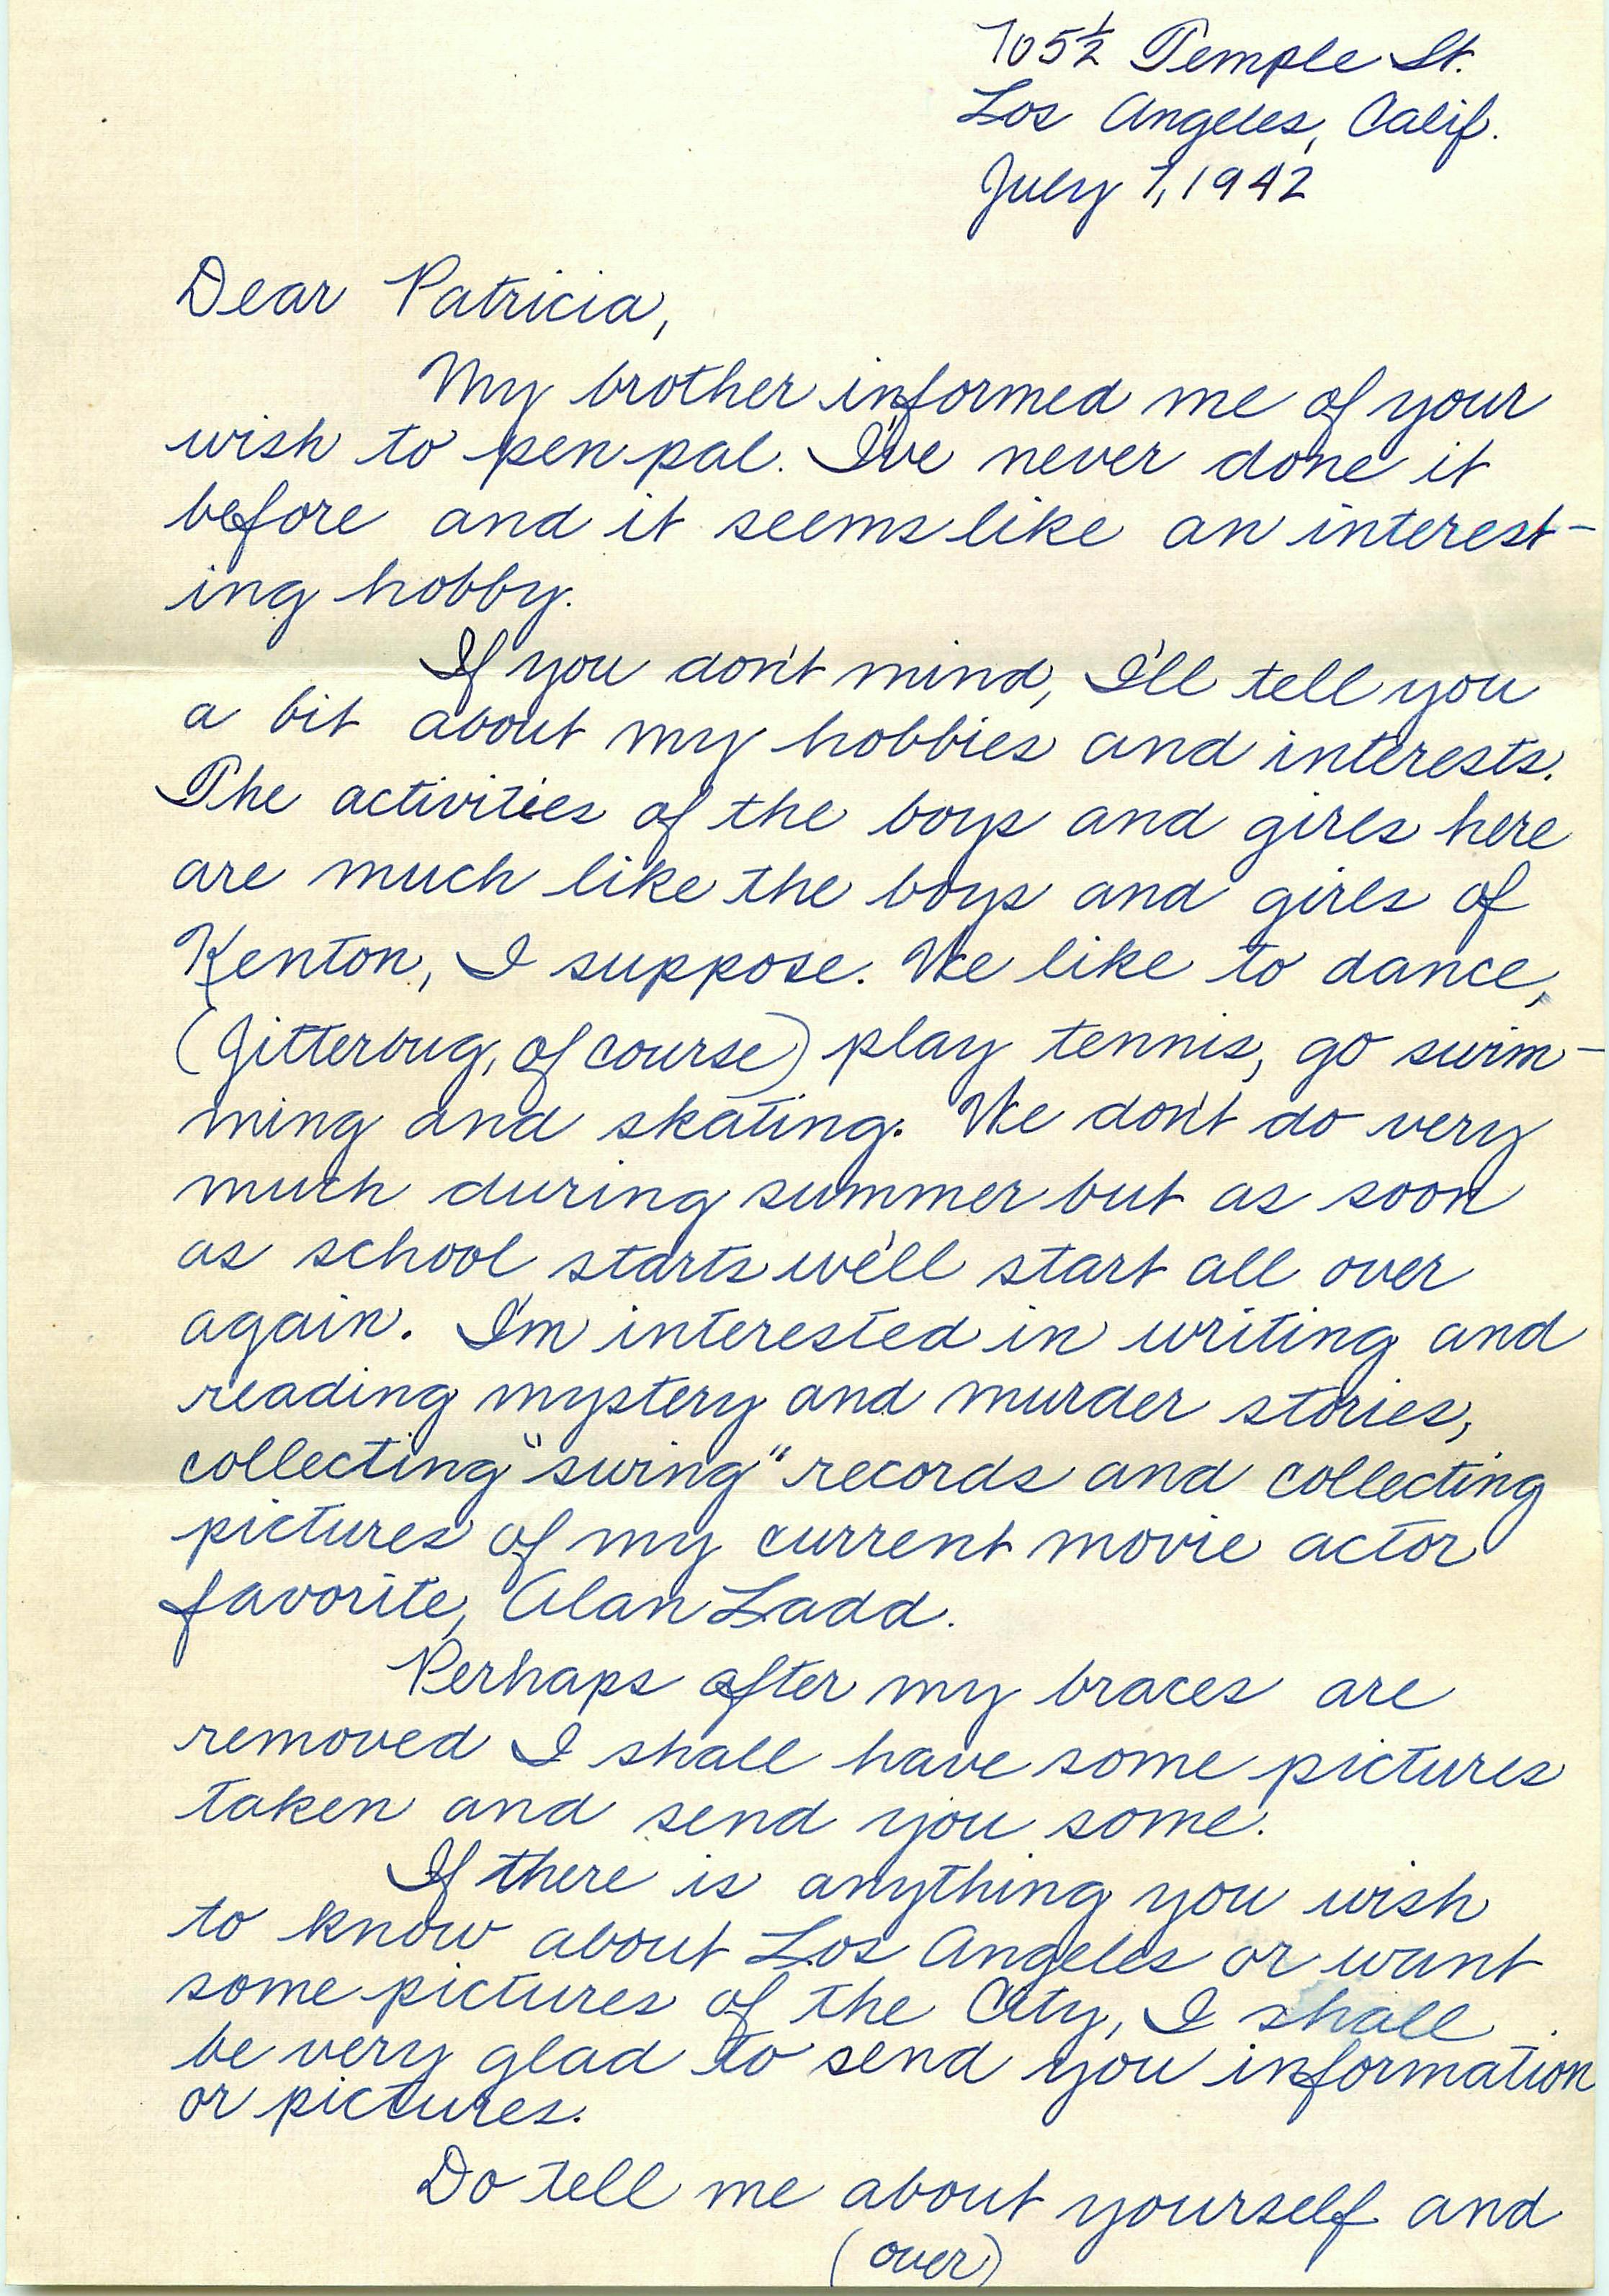 705½ Temple St.
Los Angeles, Calif.
July 7, 1942
Dear Patricia,
My brother informed me of your
wish to pen pal. I've never done it
before and it seems like an interest-
ing hobby.
If you don't mind, I'll tell you
a bit about my hobbies and interests.
The activities of the boys and girls here
are much like the boys and girls of
Kenton, I suppose. We like to dance,
(Jitterbug, of course) play tennis, go swim-
ming and skating. We don't do very
much during summer but as soon
as school starts we'll start all over
again. I'm interested in writing and
reading mystery and murder stories,
collecting "swing" records and collecting
pictures of my current movie actor
favorite, Alan Ladd.
Perhaps after my braces are
removed I shall have some pictures
taken and send you some.
If there is anything you wish
to know about Los Angeles or want
some pictures of the City, I shall
be very glad to send you information
or pictures.
Do tell me about yourself and
(over)